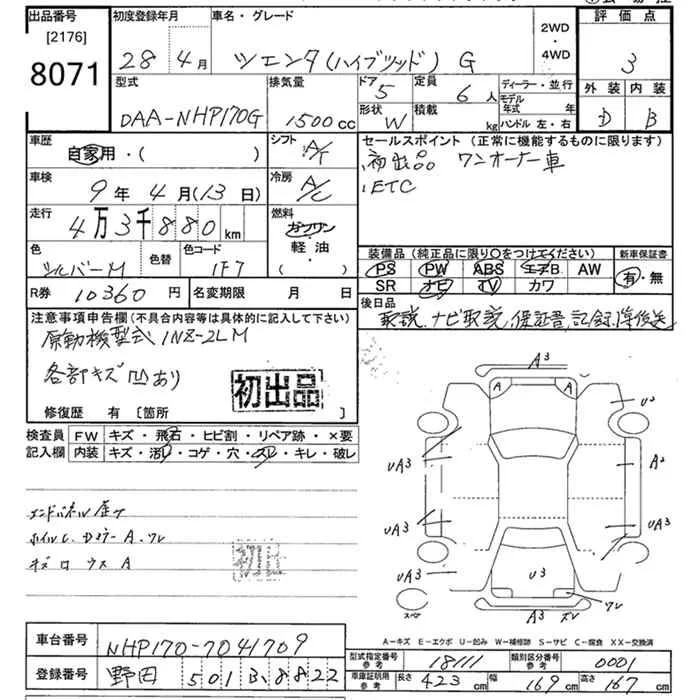 出品番号
[2176]
8071
初度登録年月
28年4月
車名・グレード
シエンタ(ハイブリッド) G
2WD
・
4WD
評価点
3
外装 内装
D B
型式
DAA-NHP170G
排気量
1500cc
ドア
5
形状
W
定員
6人
積載
kg
ディーラー・並行
モデル年式 年
ハンドル 左・右
車歴
自家用・( )
シフト
A/T
車検
9年4月(13日)
冷房
A/C
走行
4万3千880km
燃料
ガソリン
軽・油
( )
色
シルバーM
色替
色コード
1F7
R券
10360円
名変期限 月 日
セールスポイント(正常に機能するものに限ります)
初出品 ワンオーナー車
ETC
装備品(純正品に限り○をつけてください)
PS PW ABS エアB AW
SR ナビ TV カワ
新車保証書
有・無
後日品
取説、ナビ取説、保証書、記録
注意事項申告欄(不具合内容等は具体的に記入して下さい)
原動機型式 1NZ-2LM
各部キズ凹あり
初出品
修復歴 有 〔箇所 〕
検査員
記入欄
FW キズ・飛石・ヒビ割・リペア跡・×要
内装 キズ・汚レ・コゲ・穴・スレ・キレ・破レ
エンドパネル
A
A3
A A
U2
UA3
A2
UA3
UA3
UA3
UA3
U3
ワレ
スペア
A3
A-キズ E-エクボ U-凹み W-補修跡 S-サビ C-腐食 XX-交換済
車台番号
NHP170-7041709
登録番号
野田 501 8822
型式指定番号
参考
18111
類別区分番号
参考
0001
車庫証明用
参考
長さ 423cm
幅 169cm
高さ 167cm